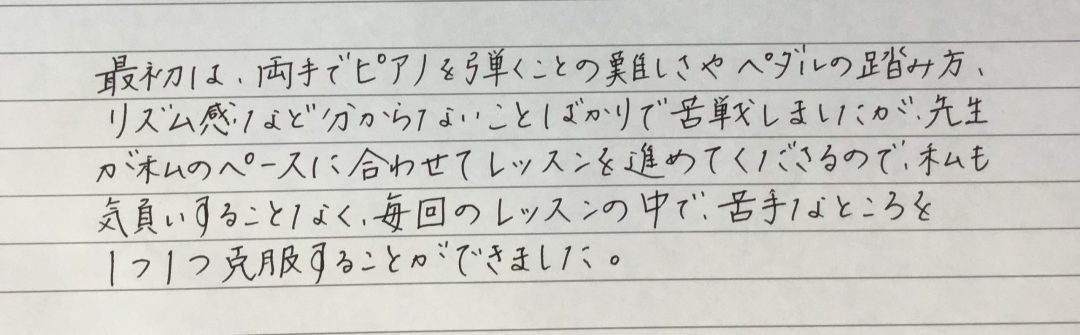 最初は、両手でピアノを弾くことの難しさやペダルの踏み方、
リズム感など分からないことばかりで苦戦しましたが、先生
が私のペースに合わせてレッスンを進めてくださるので、私も
気負いすることなく、毎回のレッスンの中で、苦手なところを
1つ1つ克服することができました。